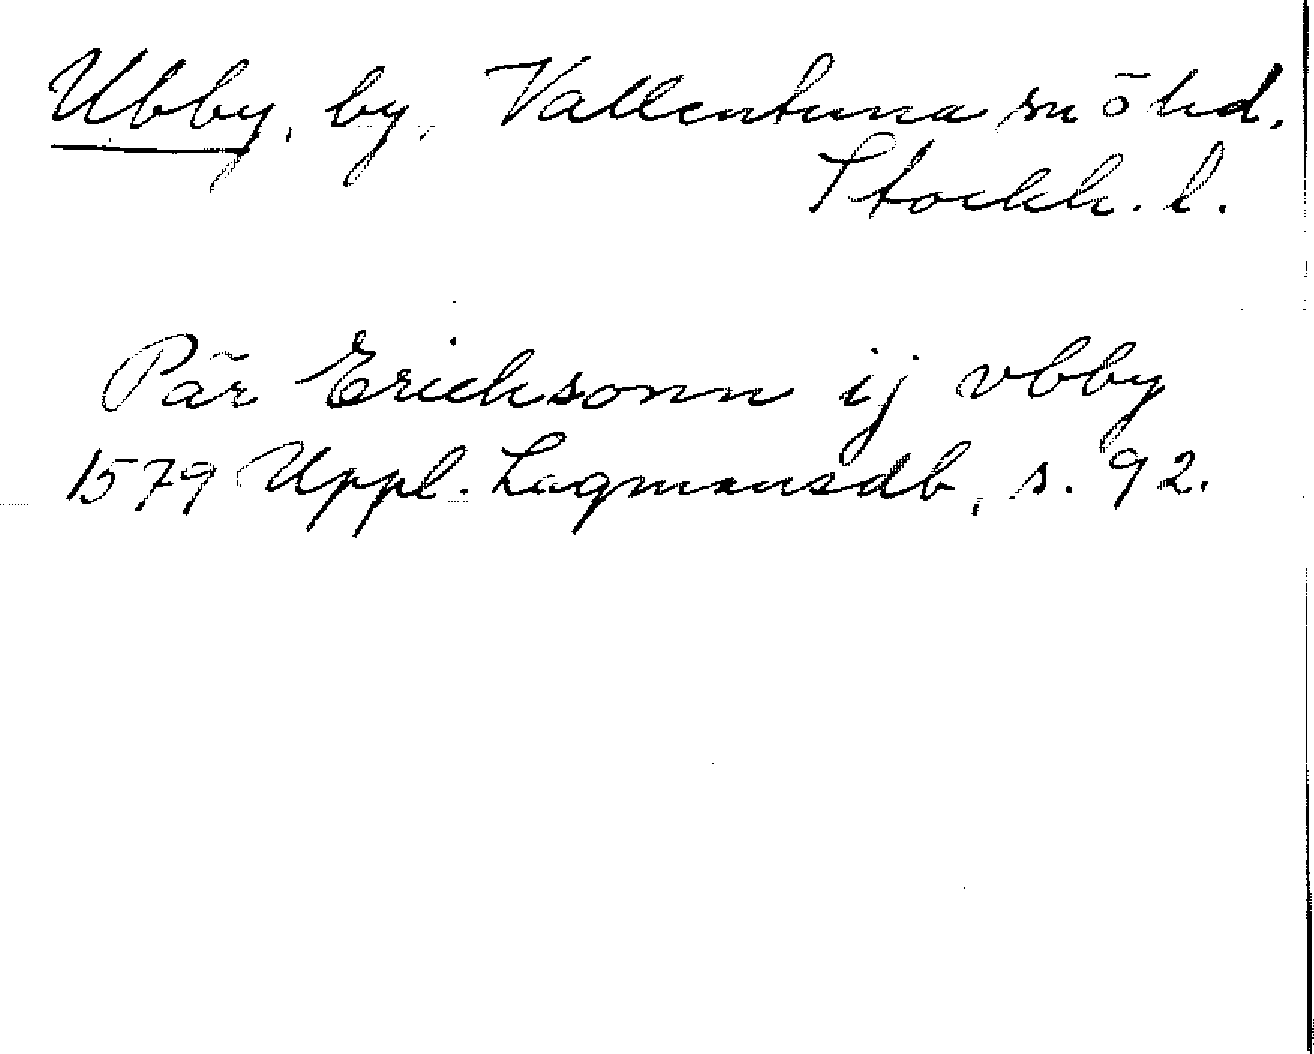 Ubby, by, Vallentuna sn ō hd,
Stockh. l.
Pär Ericksonn ij vbby
1579 Uppl. Lagmansdb, s. 92.